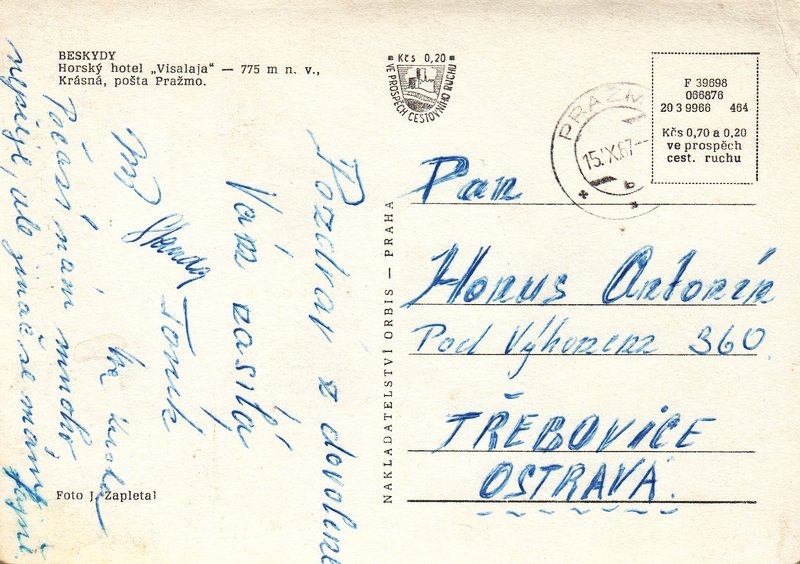 BESKYDY
Horský hotel „Visalaja“ — 775 m n. v.,
Krásná, pošta Pražmo.
Kčs 0,20
VE PROSPĚCH CESTOVNÍHO RUCHU
PRAŽM
15.IX.67
b
F 39698
066876
20 3 9966 464
Kčs 0,70 a 0,20
ve prospěch
cest. ruchu
Pozdrav z dovolené
Vám zasílá
Tonik
Počasí nám mnoho
nepřeje, ale jinak se máme
fajně
NAKLADATELSTVÍ ORBIS — PRAHA
Pan
Honus Antonín
Pod Výhonem 360
TŘEBOVICE
OSTRAVA.
Foto J. Zapletal